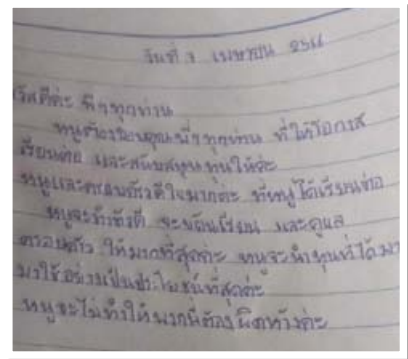 วันที่ 1 เมษายน 2566
วัสดีค่ะ พี่ๆทุกท่าน
หนูต้องขอบคุณพี่ๆทุกท่าน ที่ให้โอกาส
เรียนต่อ และสนับสนุนทุนให้ค่ะ
หนูและครอบครัวดีใจมากค่ะ ที่หนูได้เรียนต่อ
หนูจะทำตัวดี จะขยันเรียน และดูแล
ครอบครัว ให้มากที่สุดค่ะ หนูจะนำทุนที่ได้มา
มาใช้อย่างเป็นประโยชน์ที่สุดค่ะ
หนูจะไม่ทำให้พวกพี่ต้องผิดหวังค่ะ